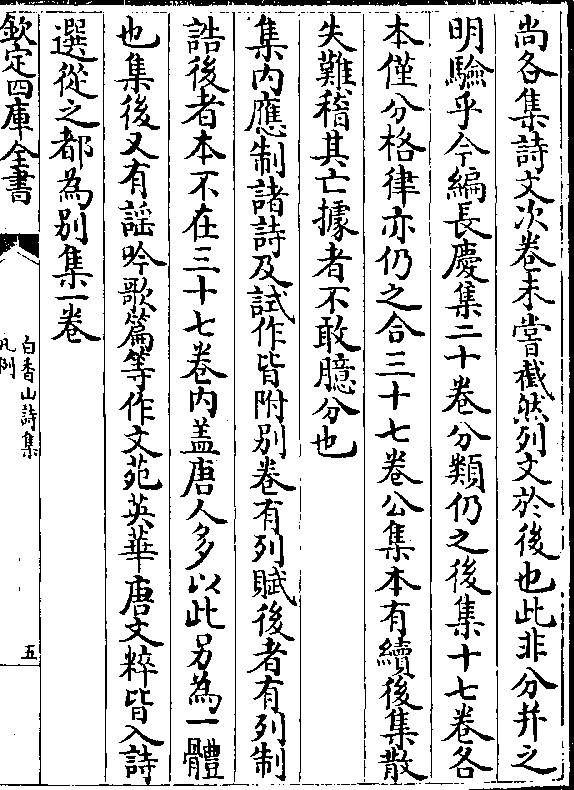 尚各集詩文次卷未嘗截然列文於後也此非分幷之
明驗乎今編長慶集二十卷分類仍之後集十七卷各
本僅分格律亦仍之合三十七卷公集本有續後集散
失難稽其亡據者不敢臆分也
集内應制諸詩及試作皆附别卷有列賦後者有列制
誥後者本不在三十七卷内盖唐人多以此另為一體
也集後又有謡吟歌篇等作文苑英華唐文粹皆入詩
選從之都為别集一卷
欽定四庫全書
白香山詩集
凡例
五